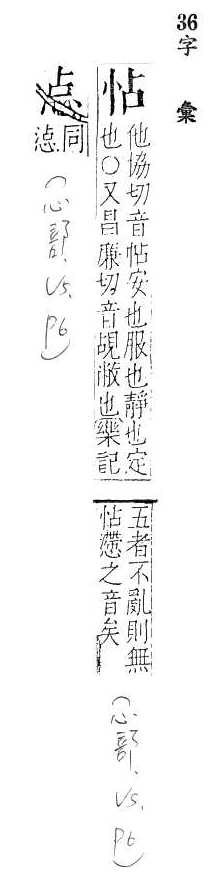 36字 彙
怗
他協切音帖安也服也靜也定
也○又昌廉切音覘敝也樂記
五者不亂則無
怗懘之音矣
(心部. V5. P6)
同
惉
(心部. V5. P6)